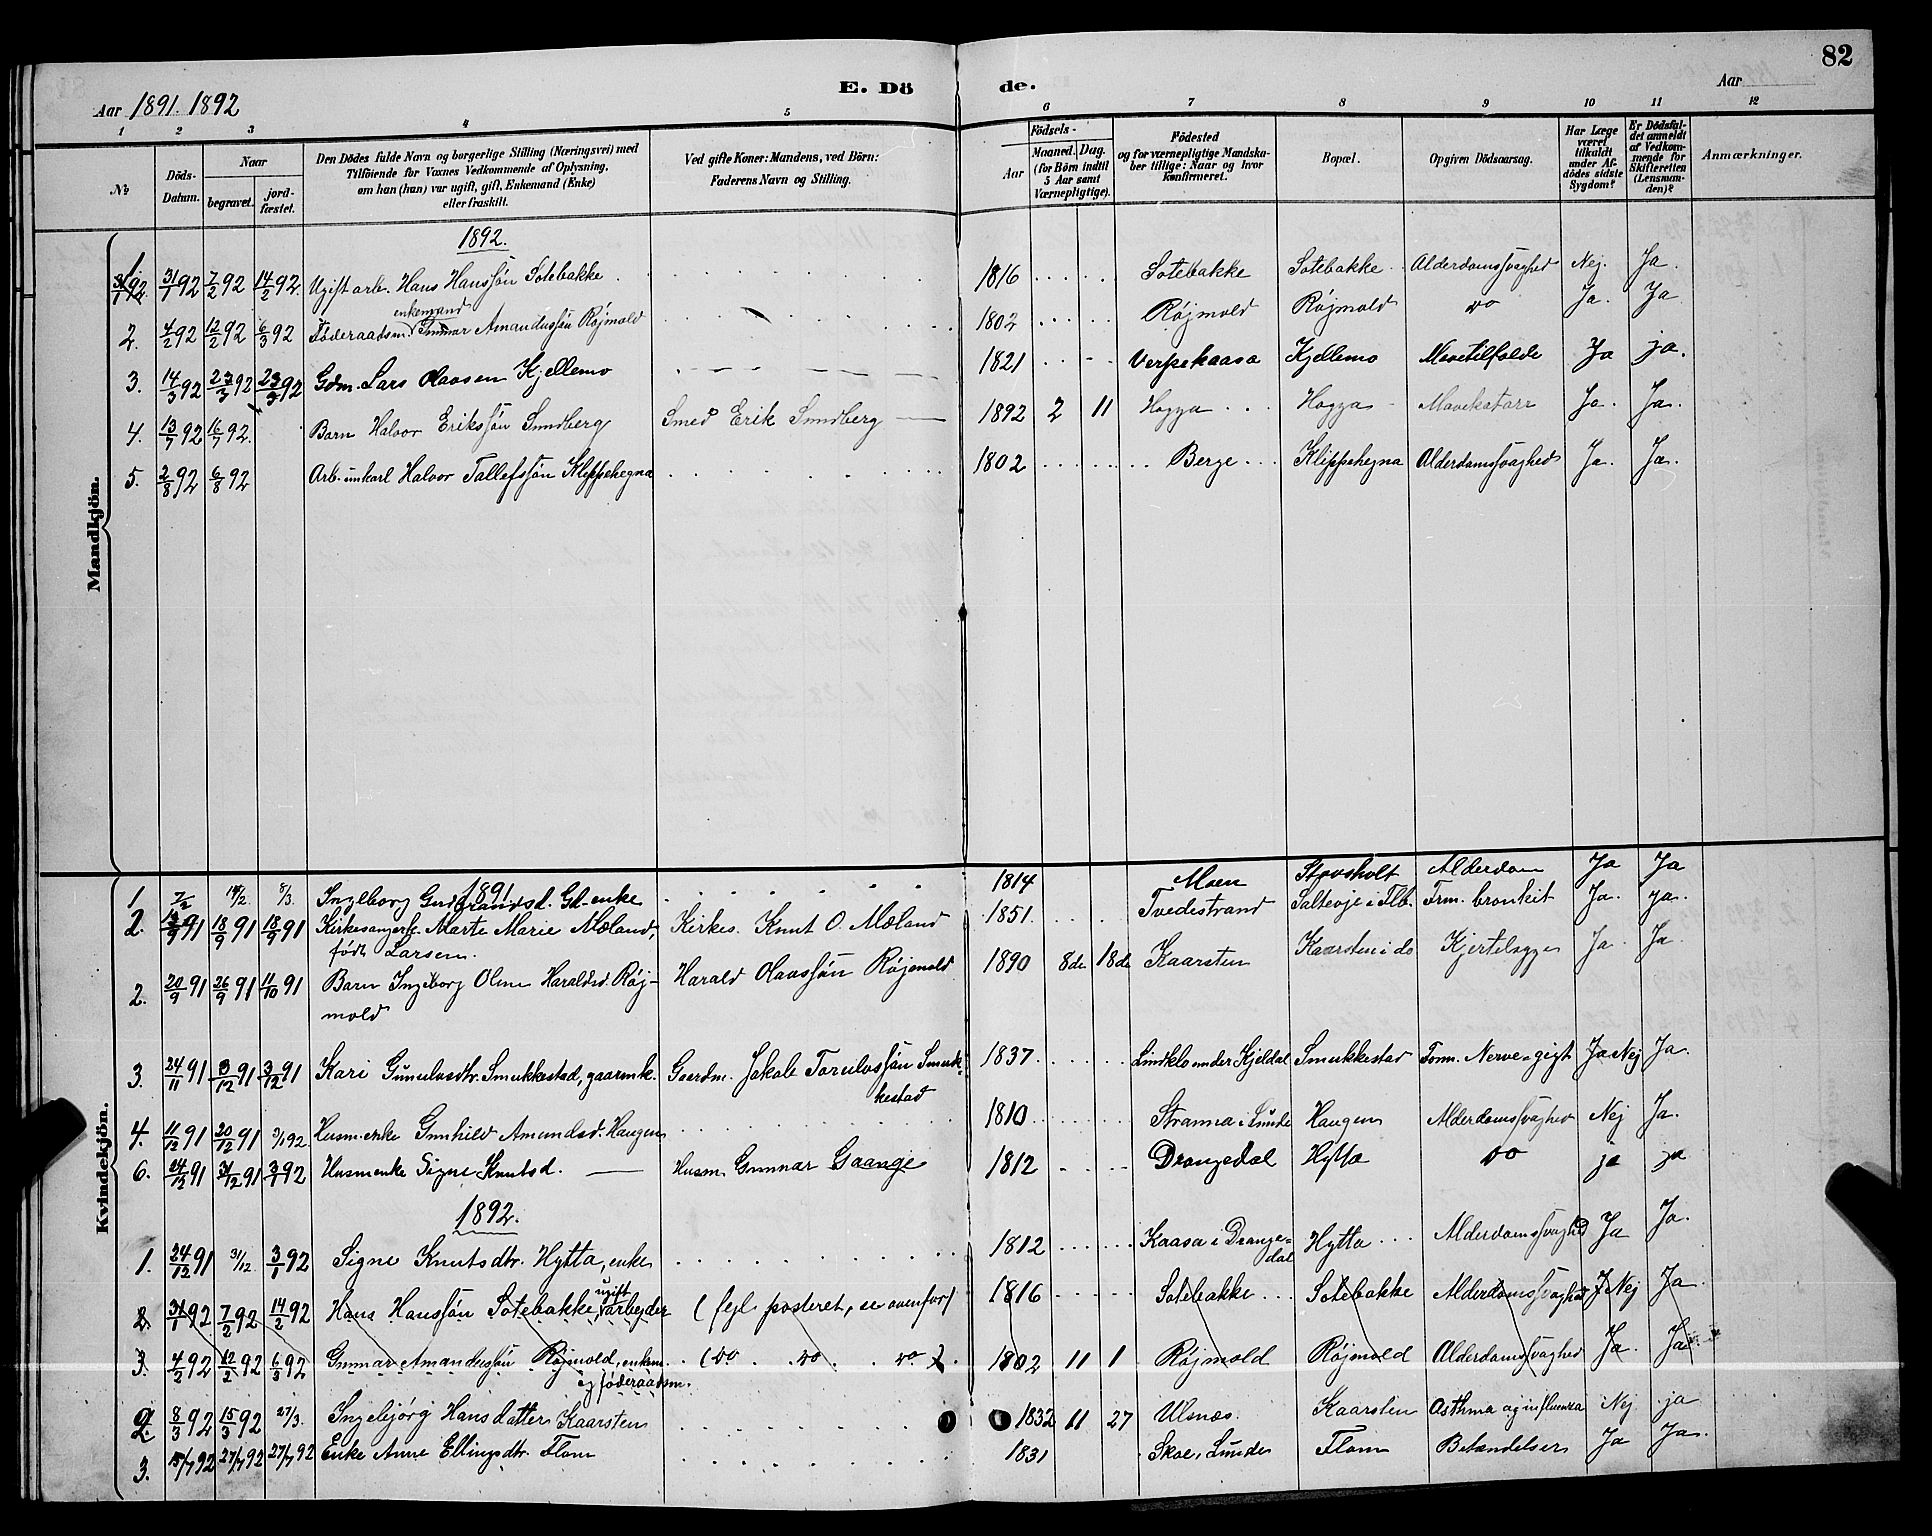 82
E. Dö de.
Aar 1891. 1892
Aar
1 2 3 4 5 6 7 8 9 10 11 12
No
Döds-Datum.
Naar
begravet.
jordfæstet.
Den Dödes fulde Navn og borgerlige Stilling (Næringsvei) med
Tilföiende for Voxnes Vedkommende af Oplysning,
om han (hun) var ugift, gift, Enkemand (Enke)
eller fraskilt.
Ved gifte Koner: Mandens, ved Börn:
Faderens Navn og Stilling.
Födsels-
Aar
Maaned. Dag.
(for Börn indtil
5 Aar samt
Værnepligtige).
Födested
og for værnepligtige Mandskaber tillige: Naar og hvor
Konfirmeret.
Bopæl.
Opgiven Dödsaarsag.
Har Læge
været
tilkaldt
under Afdödes sidste
Sygdom?
Er Dödsfaldet anmeldt
af Vedkommende for
Skifteretten
(Lensmanden)?
Anmærkninger.
Mandkjön.
1892.
1 31/1 92 31/1 92 7/2 92 14/2 92. Ugift arb. Hans Hanssön Sotebakke 1816 Sotebakke Sotebakke Alderdomssvaghed Nej. Ja.
enkemand
2. 4/2 92 12/2 92 6/3 92 Föderaadsm. Gunnar Amundssön Röjmold 1802 Röjmold Röjmold do Ja. Ja
3. 14/3 92 23/3 92 23/3 92 Gdm. Lars Olaosen Kjellemo 1821 Versekaasa Kjellemo Mavetilfælde Ja ja.
4. 13/7 92 16/7 92. Barn Halvor Erikssön Sundberg Smed Erik Sundberg 1892 2 11 Hogga Hogga Mavekatarr Ja. Ja.
5. 2/8 92 6/8 92 Arb. unkarl Halvor Tallefssön Klippehegna 1802 Berge Klippehegna Alderdomssvaghed Ja. Ja.
Kvindekjön.
1 7/2 14/2. 8/3. Ingeborg Gudbrandsd. Gd. enke 1814 Moen Stavsholt Alderdom Ja Ja
1891
2. 91 18/9 91 18/9 91 Kirkesangerk. Marte Marie Mæland, Kirkes. Knut O. Mæland 1851. Tvedestrand Salteoje i Flb. Frm. bronkit Ja. ja.
född Larsen.
2. 20/9 91 26/9 91 11/10 91 Barn Ingeborg Oline Haraldsd. Röj- Harald Olavssön Röjmold 1890 8de 18de Kaarsten Kaarsten i do Kjertelsyge Ja. Ja.
mold
3. 24/11 91 3/12 91 3/12 91 Kari Gunulvsdtr. Smukkestad, gaarmk. Gaardm. Jakob Torulvssön Smuk- 1837. Lindklo under Kjeldal Smukkestad Form. Nerve-gigt Ja Nej Ja.
kestad
4. 11/12 91 20/12 91 3/1 92 Husm. enke Gunhild Amundsd. Haugen 1810 Stranna i Lunde Haugen Alderdomssvaghed Nej Ja.
6. 24/12 91 31/12 91 3/1 92 Husmenke Signe Knutsd. Husm. Gunnar Gaange 1812 Drangedal Hytta do ja ja
1892.
1. 24/12 91 31/12. 3/1 92 Signe Knutsdtr. Hytta, enke 1812 Kaasa i Drange- Hytta Alderdomssvaghed Ja Ja.
dal
ugift
2. 31/1 92 7/2 92 14/2 92 Hans Hanssön Sotebakke, arbejder (fejl posteret, se ovenfor) 1816 Sotebakke Sotebakke Alderdomssvaghed J Nej Ja
3. 4/2 92 12/2 92 6/3 92 Gunnar Amundssön Röjmold, enkem. (do do do) 1802 11 1 Röjmold Röjmold Alderdomssvaghed Ja Ja
og föderaadsm.
2. 8/3 92 15/3 92 27/3. Ingebjörg Hansdatter Kaarsten 1832 11 27 Ulsnes. Kaarsten Asthma og influenza Nej ja
3. 15/7 92 27/7 92 27/7 92 Enke Anne Ellingsdtr. Flom 1831 Skoe, Lunde Flom Betændelser Ja Ja.